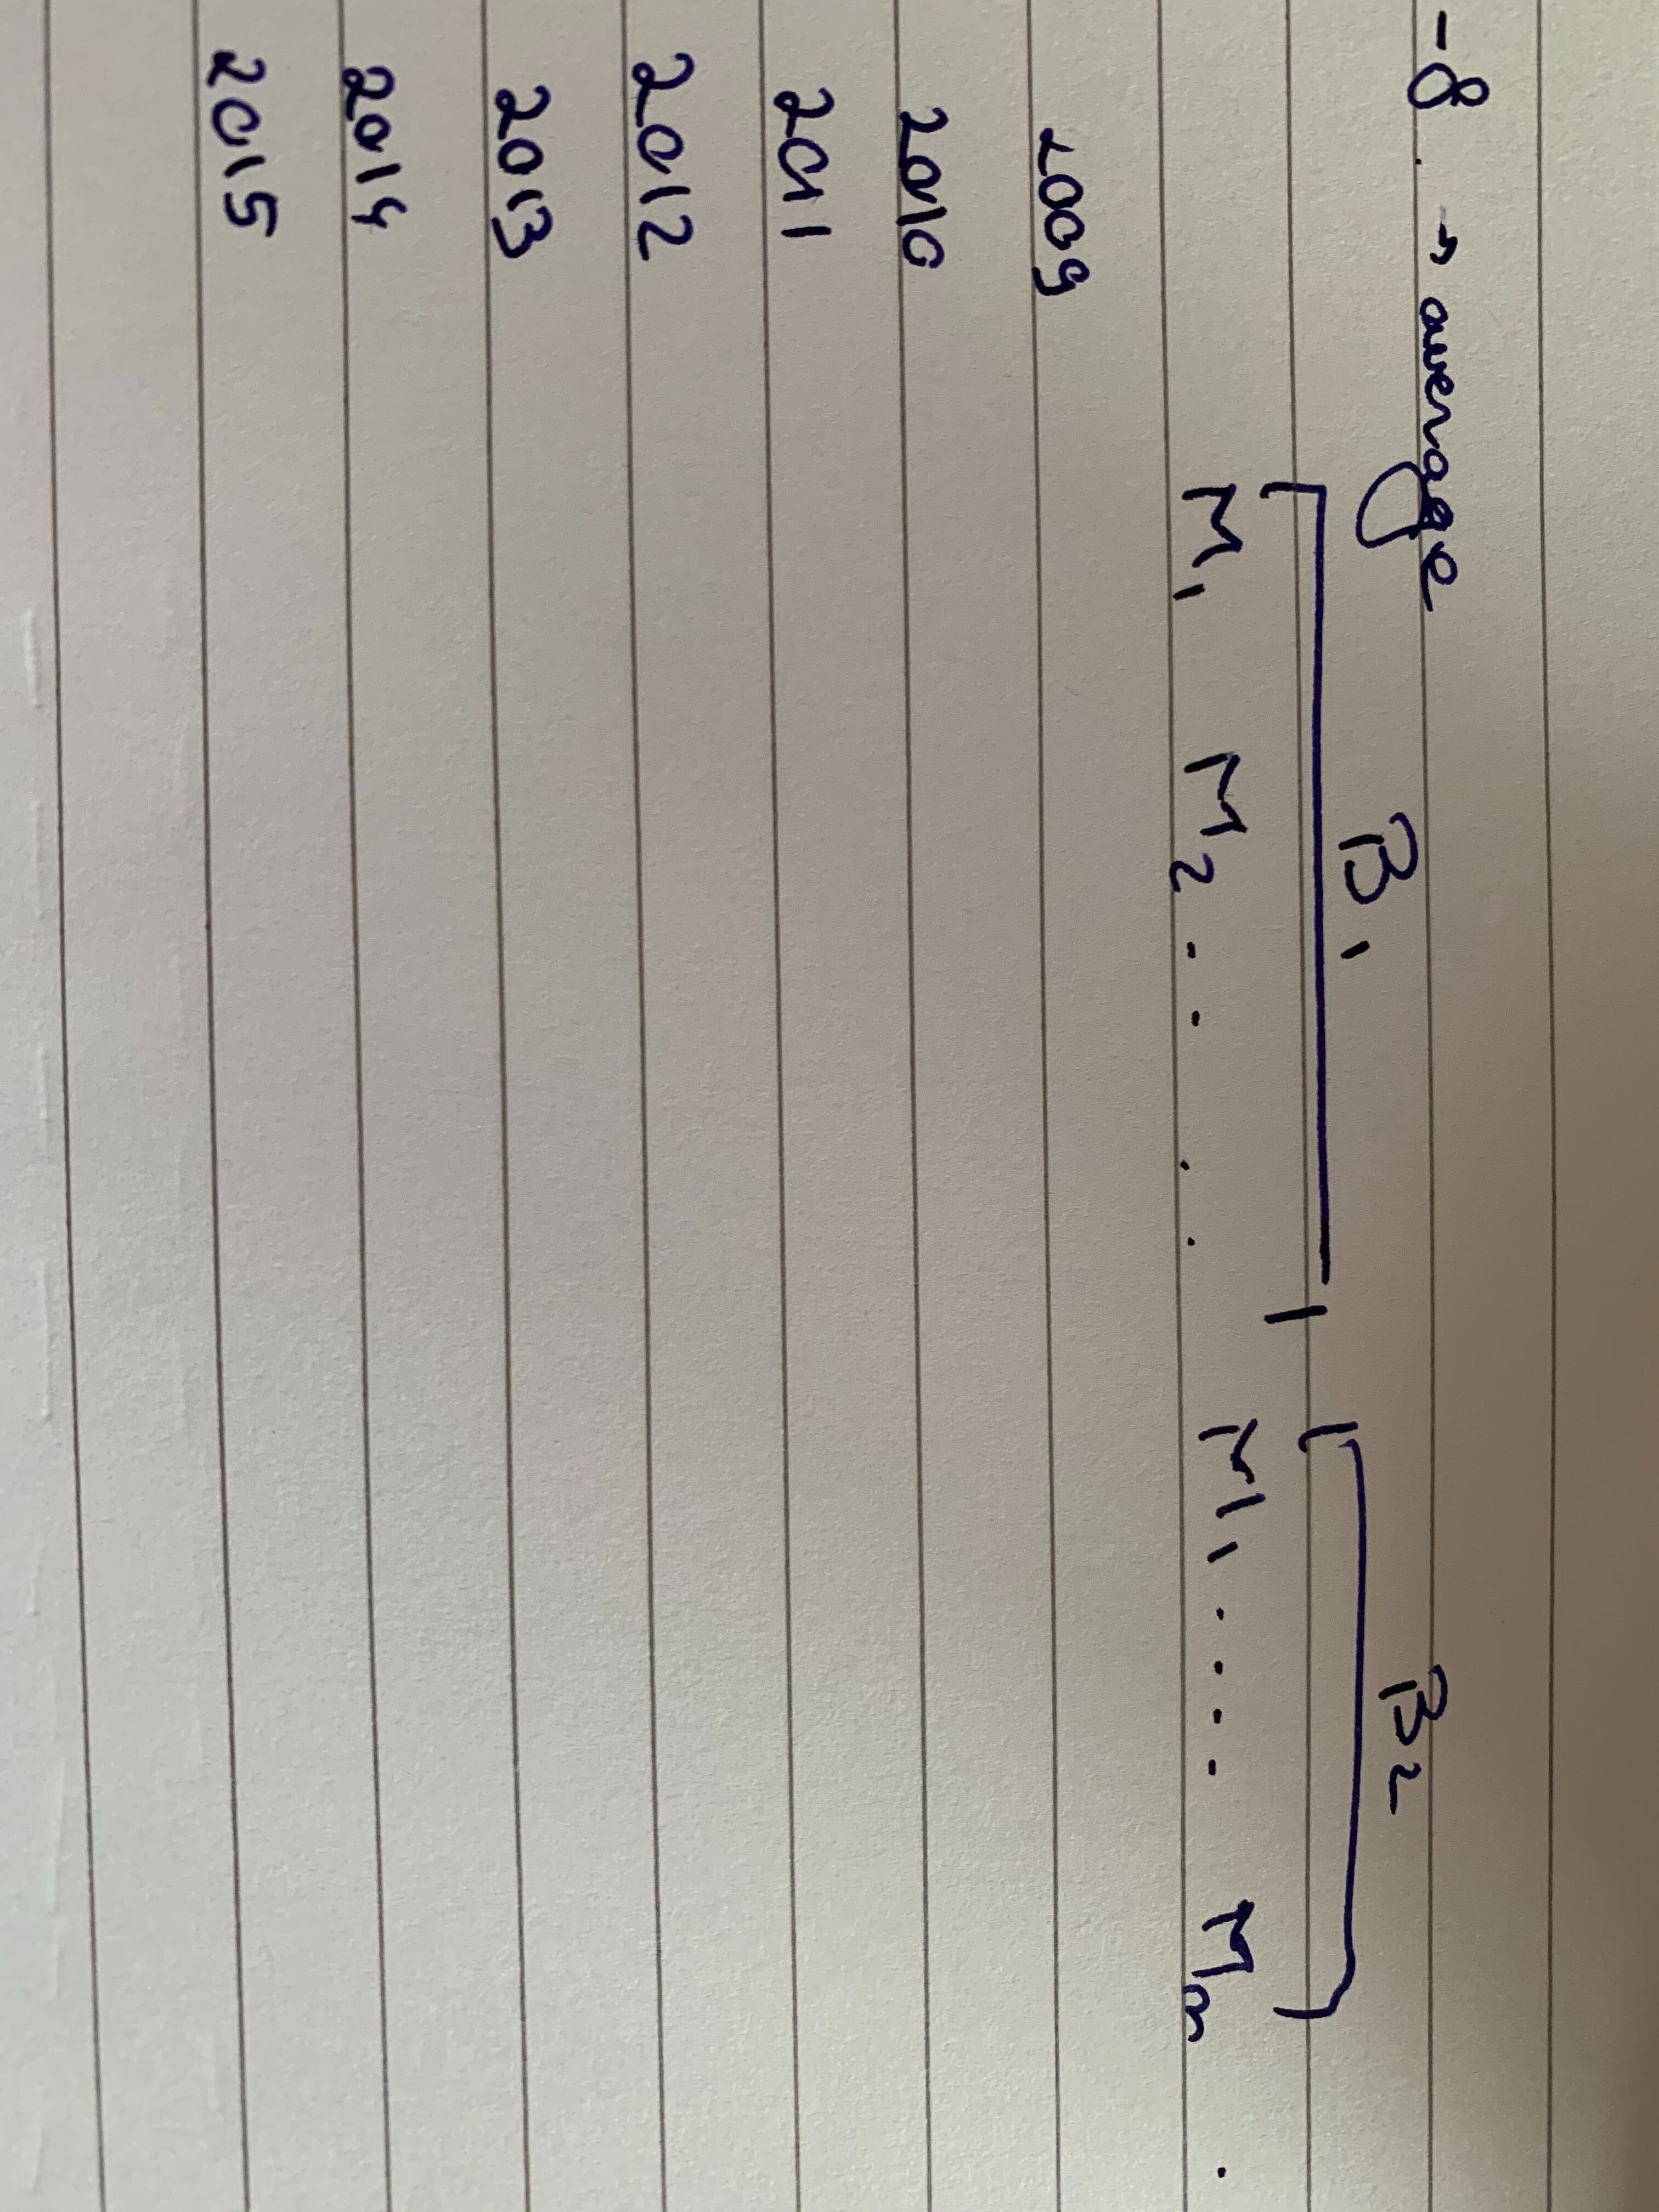 -8 . → average
B1 B2
M1 M2 .. .. M1 .... Mn .
2009
2010
2011
2012
2013
2014
2015